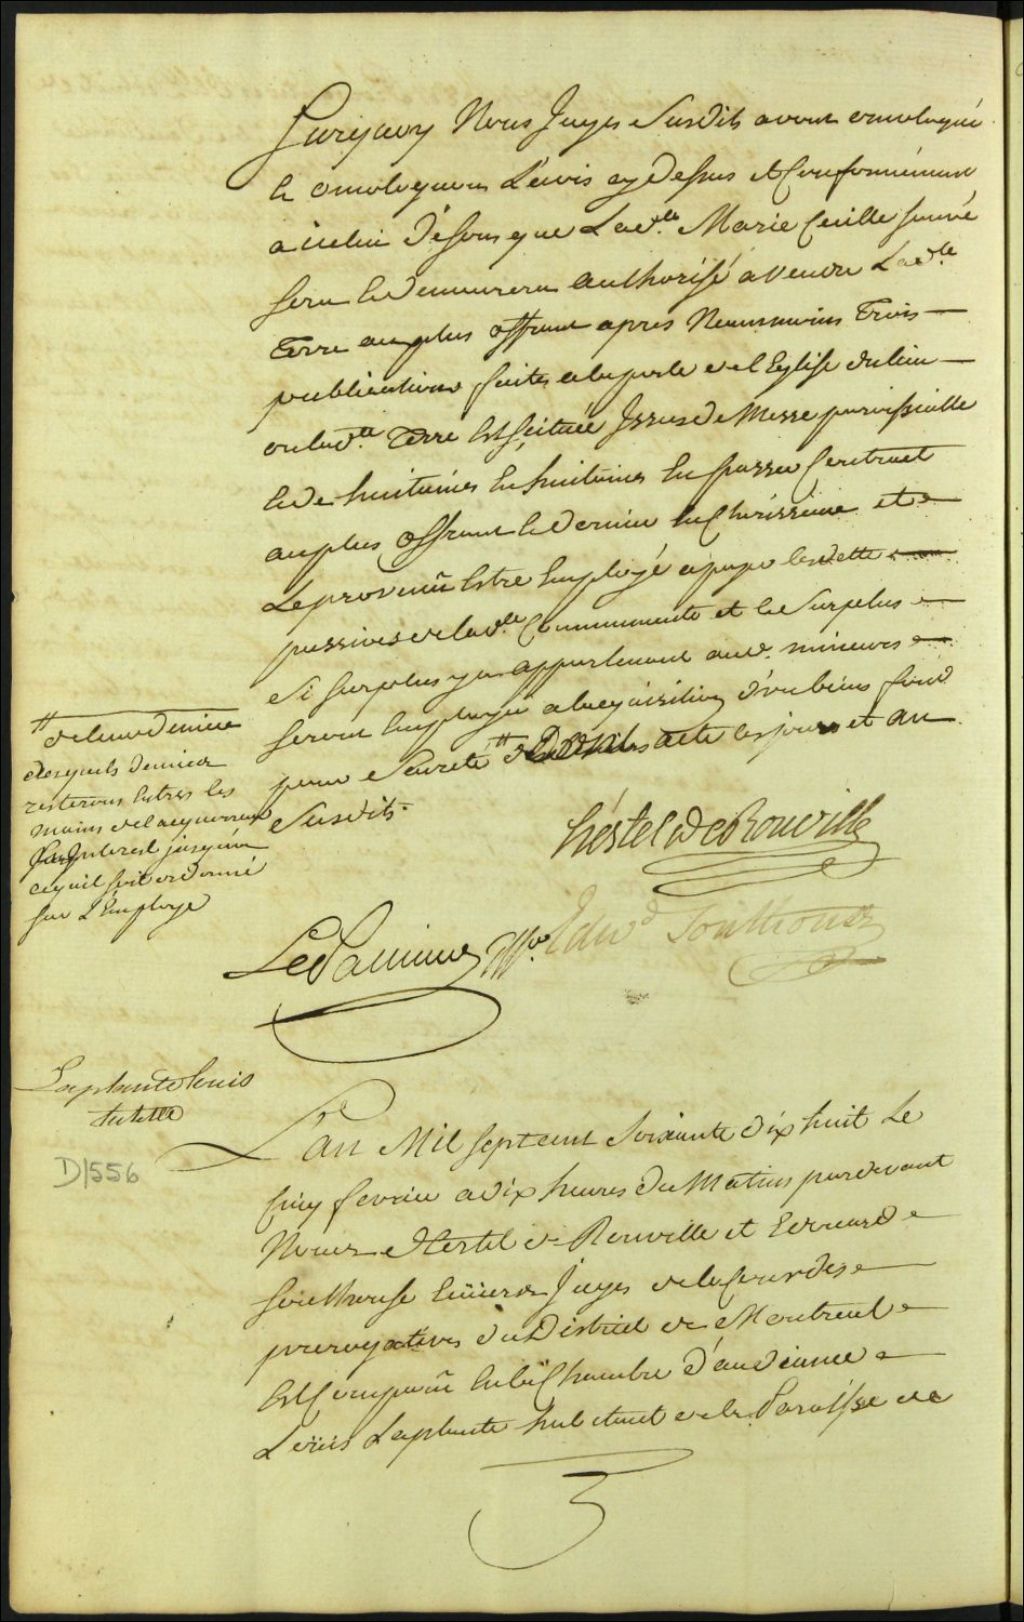 Surquoy Nous Juges Susdits avons omologué
& omologuons L'avis cy dessus & Conformément
a icelui disons que Lad.lle Marie Cecille sauvé
sera & demeurera authorisé a vendre Lad.te
Terre au plus offrant apres Neansmoins Trois
publications faites a la porte de l'Eglise du lieu
ou lad.tte Terre Est scituée Issues de Messe paroissialle
& de huitaines En huitaines En passer Contract
au plus offrant & dernier Encherisseur et
Le provenû Estre Employé a payer les dette
passives de lad.te Communauté et le Surplus
Si surplus y a appartenant aud. mineurs
seront Employé a l'acquisition d'un biens fond
pour Sureté # acte les jours et an
Susdits
# de leurs deniers
desquels deniers
resterons Entres les
mains de l'acquereur
jusqu'a
ce qu'il soit ordonné
sur L'Employe
hestel De Rouville
Edw.d Southouse
LaPlante Louis
tutelle
D1556
L'an Mil sept cent Soixante dix huit Le
Cinq fevrier a dix heures du Matin pardevant
Nous Hertel de Rouville et Edouard
Southouse Ecuiers Juges de la Cour des
prerogatives du District de Montreal
Est Comparû En la Chambre d'audiance
Loüis Laplante habitant de la Paroisse de